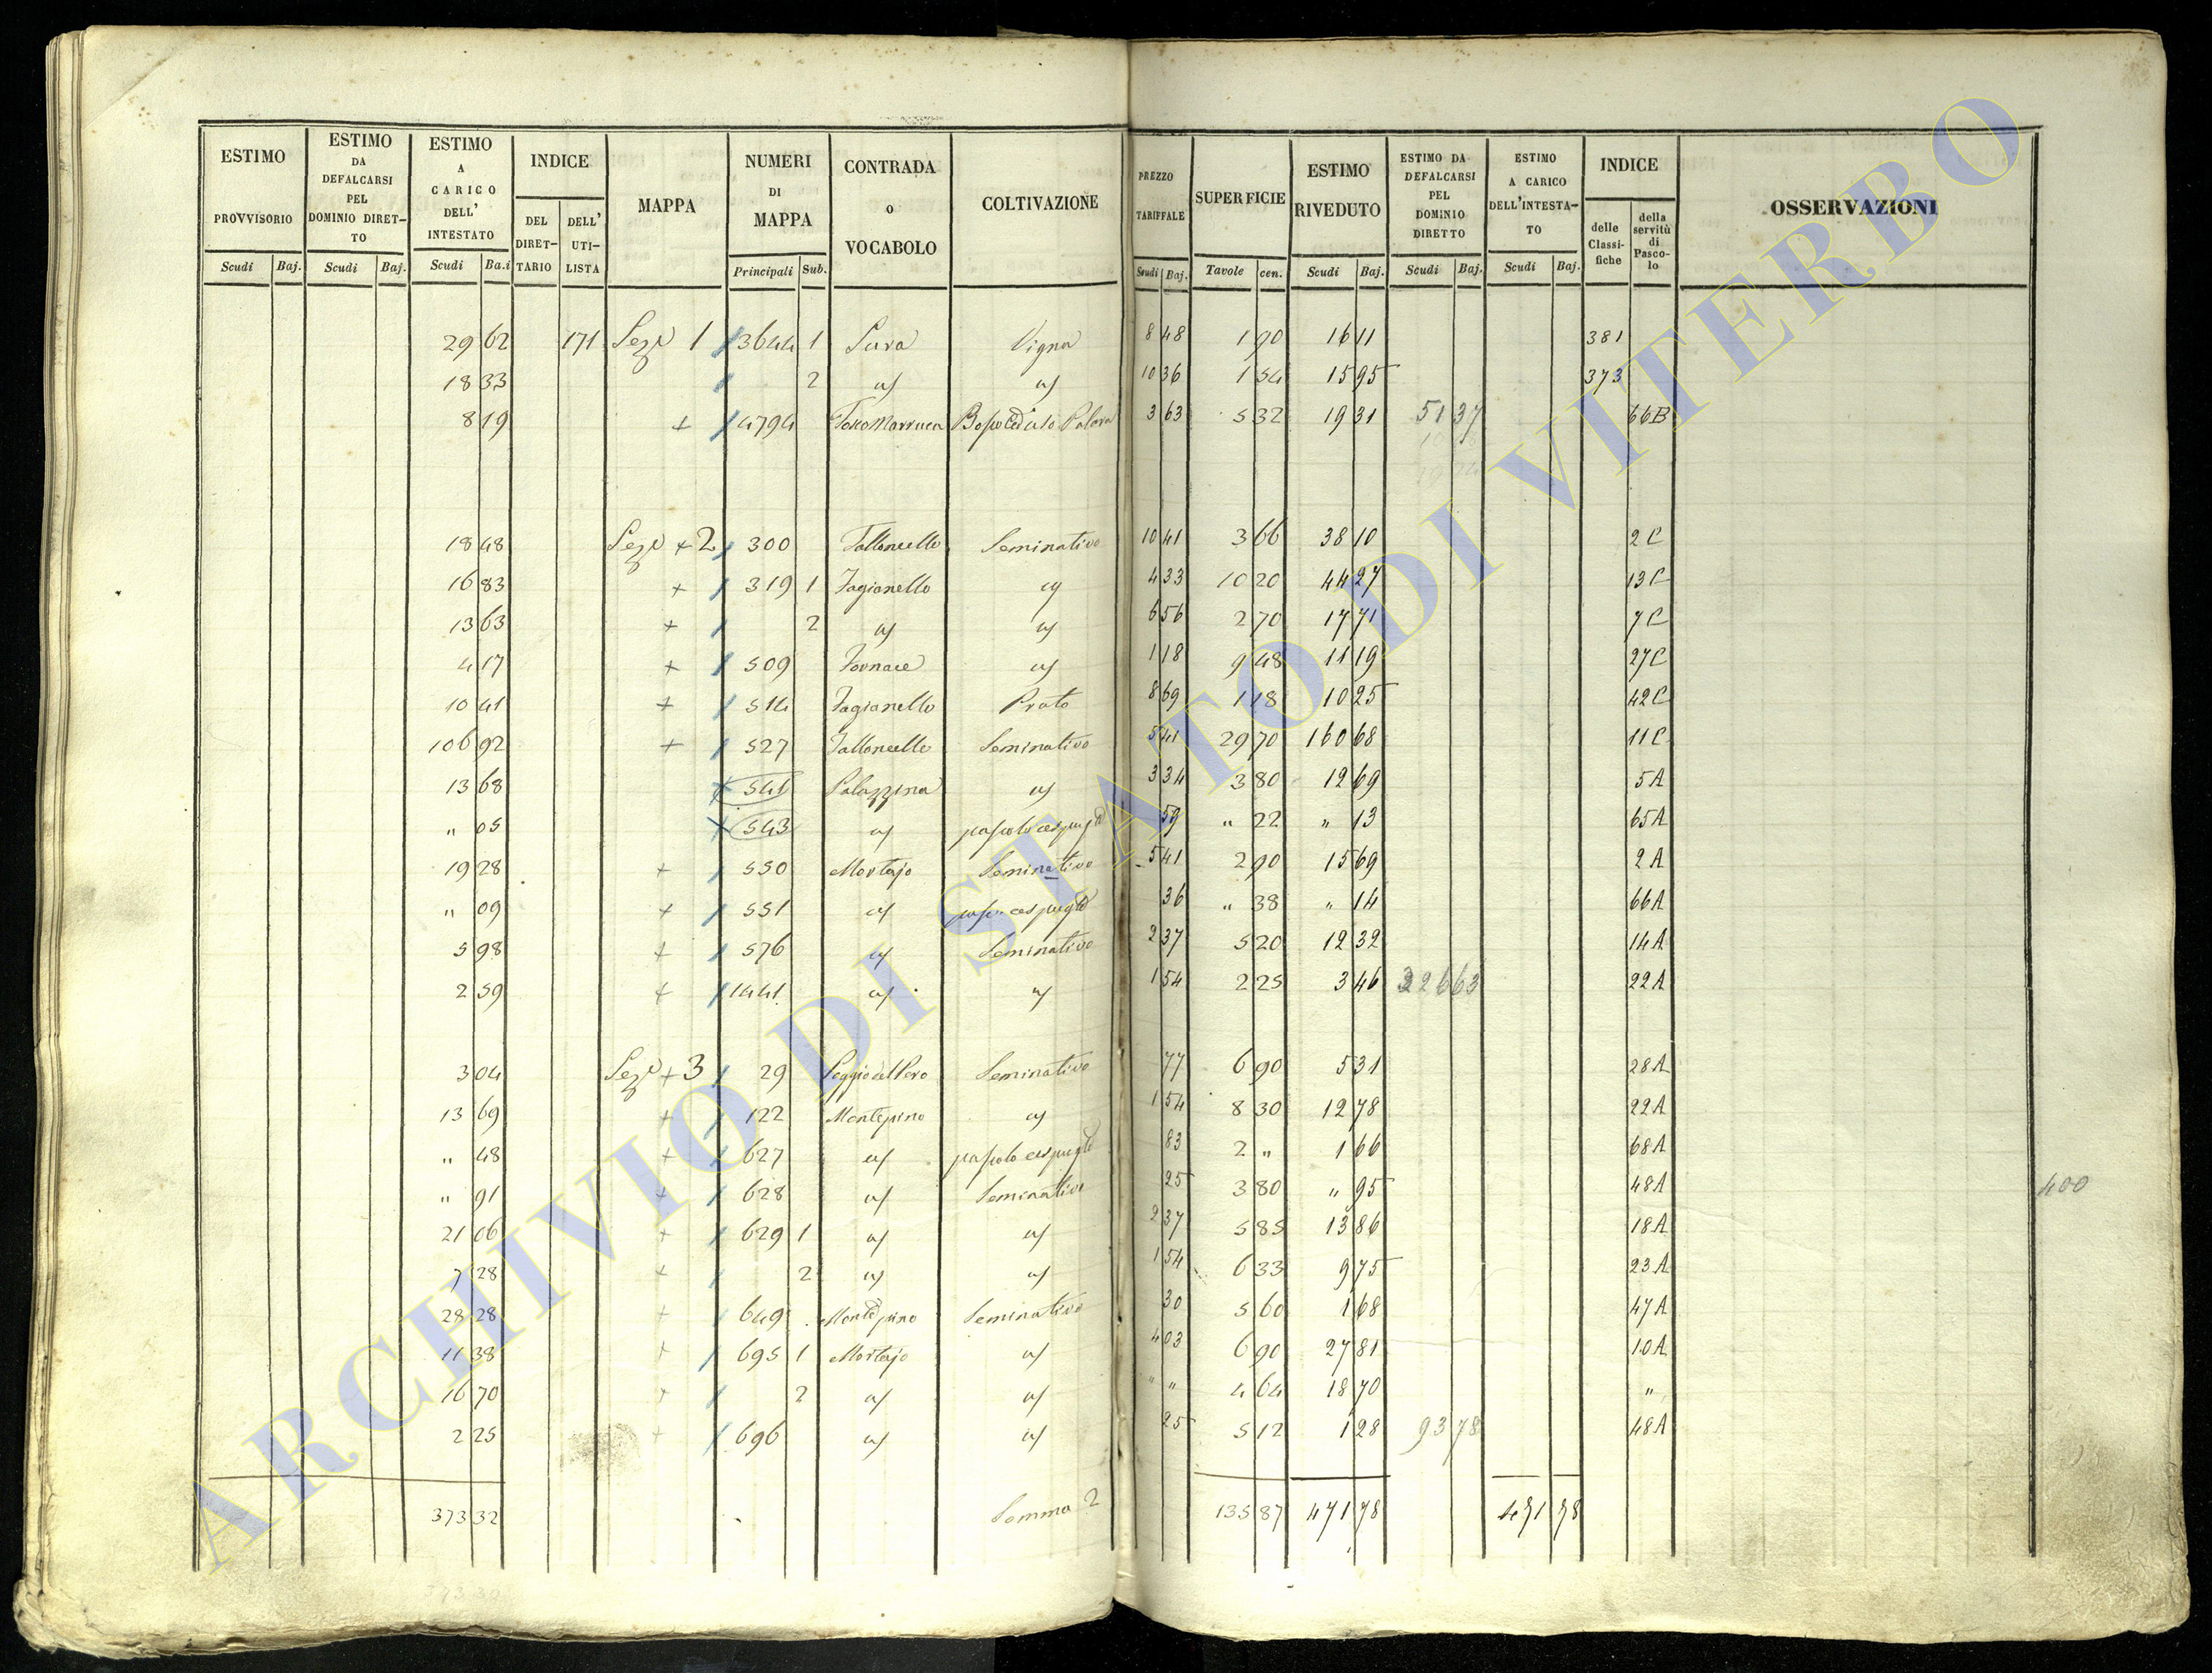 ESTIMO PROVVISORIO | ESTIMO DA DEFALCARSI PEL DOMINIO DIRETTO | ESTIMO A CARICO DELL' INTESTATO | INDICE | MAPPA | NUMERI DI MAPPA | CONTRADA o VOCABOLO | COLTIVAZIONE | PREZZO TARIFFALE | SUPERFICIE | ESTIMO RIVEDUTO | ESTIMO DA DEFALCARSI PEL DOMINIO DIRETTO | ESTIMO A CARICO DELL'INTESTATO | INDICE | OSSERVAZIONI
DEL DIRETTARIO | DELL' UTILISTA | delle Classifiche | della servitù di Pascolo
Scudi | Baj. | Scudi | Baj. | Scudi | Ba.i | Principali | Sub. | Scudi | Baj. | Tavole | cen. | Scudi | Baj. | Scudi | Baj. | Scudi | Baj.
29 62 | 171 | Seze 1 | 3644 | 1 | Sura | Vigna | 8 48 | 1 90 | 16 11 | 381
18 33 | 2 | id | id | 10 36 | 1 54 | 15 95 | 373
8 19 | + | 4794 | 3 63 | 5 32 | 19 31 | 51 37 | 66B
18 48 | Seze + 2 | 300 | Falloncello | Seminativo | 10 41 | 3 66 | 38 10 | 2C
16 83 | + | 319 | 1 | Fagianello | id | 4 33 | 10 20 | 44 27 | 13C
13 63 | + | 2 | id | id | 6 56 | 2 70 | 17 71 | 7C
4 17 | + | 509 | Fornace | id | 1 18 | 9 48 | 11 19 | 27C
10 41 | + | 514 | Fagianello | Prato | 8 69 | 1 18 | 10 25 | 42C
106 92 | + | 527 | Falloncello | Seminativo | 5 41 | 29 70 | 160 68 | 11C
13 68 | 541 | Palazzina | id | 3 34 | 3 80 | 12 69 | 5A
" 05 | 543 | id | pascolo cespugto | 59 | " 22 | " 13 | 65A
19 28 | + | 550 | Mortajo | Seminativo | 5 41 | 2 90 | 15 69 | 2A
" 09 | + | 551 | id | pasc. cespugto | 36 | " 38 | " 14 | 66A
5 98 | + | 576 | id | Seminativo | 2 37 | 5 20 | 12 32 | 14A
2 59 | + | 1441 | id | id | 1 54 | 2 25 | 3 46 | 226 63 | 22A
3 04 | Sezе + 3 | 29 | Poggio del Pero | Seminativo | 77 | 6 90 | 5 31 | 28A
13 69 | + | 122 | Montepino | id | 1 54 | 8 30 | 12 78 | 22A
" 48 | + | 627 | id | pascolo cespugto | 83 | 2 " | 1 66 | 68A
" 91 | + | 628 | id | Seminativo | 25 | 3 80 | " 95 | 48A | 400
21 06 | + | 629 | 1 | id | id | 2 37 | 5 85 | 13 86 | 18A
7 28 | + | 2 | id | id | 1 54 | 6 33 | 9 75 | 23A
28 28 | + | 649 | Montepino | Seminativo | 30 | 5 60 | 1 68 | 47A
11 38 | + | 695 | 1 | Mortajo | id | 4 03 | 6 90 | 27 81 | 10A
16 70 | + | 2 | id | id | " " | 4 64 | 18 70 | "
2 25 | + | 696 | id | id | 25 | 5 12 | 1 28 | 93 78 | 48A
373 32 | Somma 2 | 135 87 | 471 78 | 471 78
373 30
ARCHIVIO DI STATO DI VITERBO